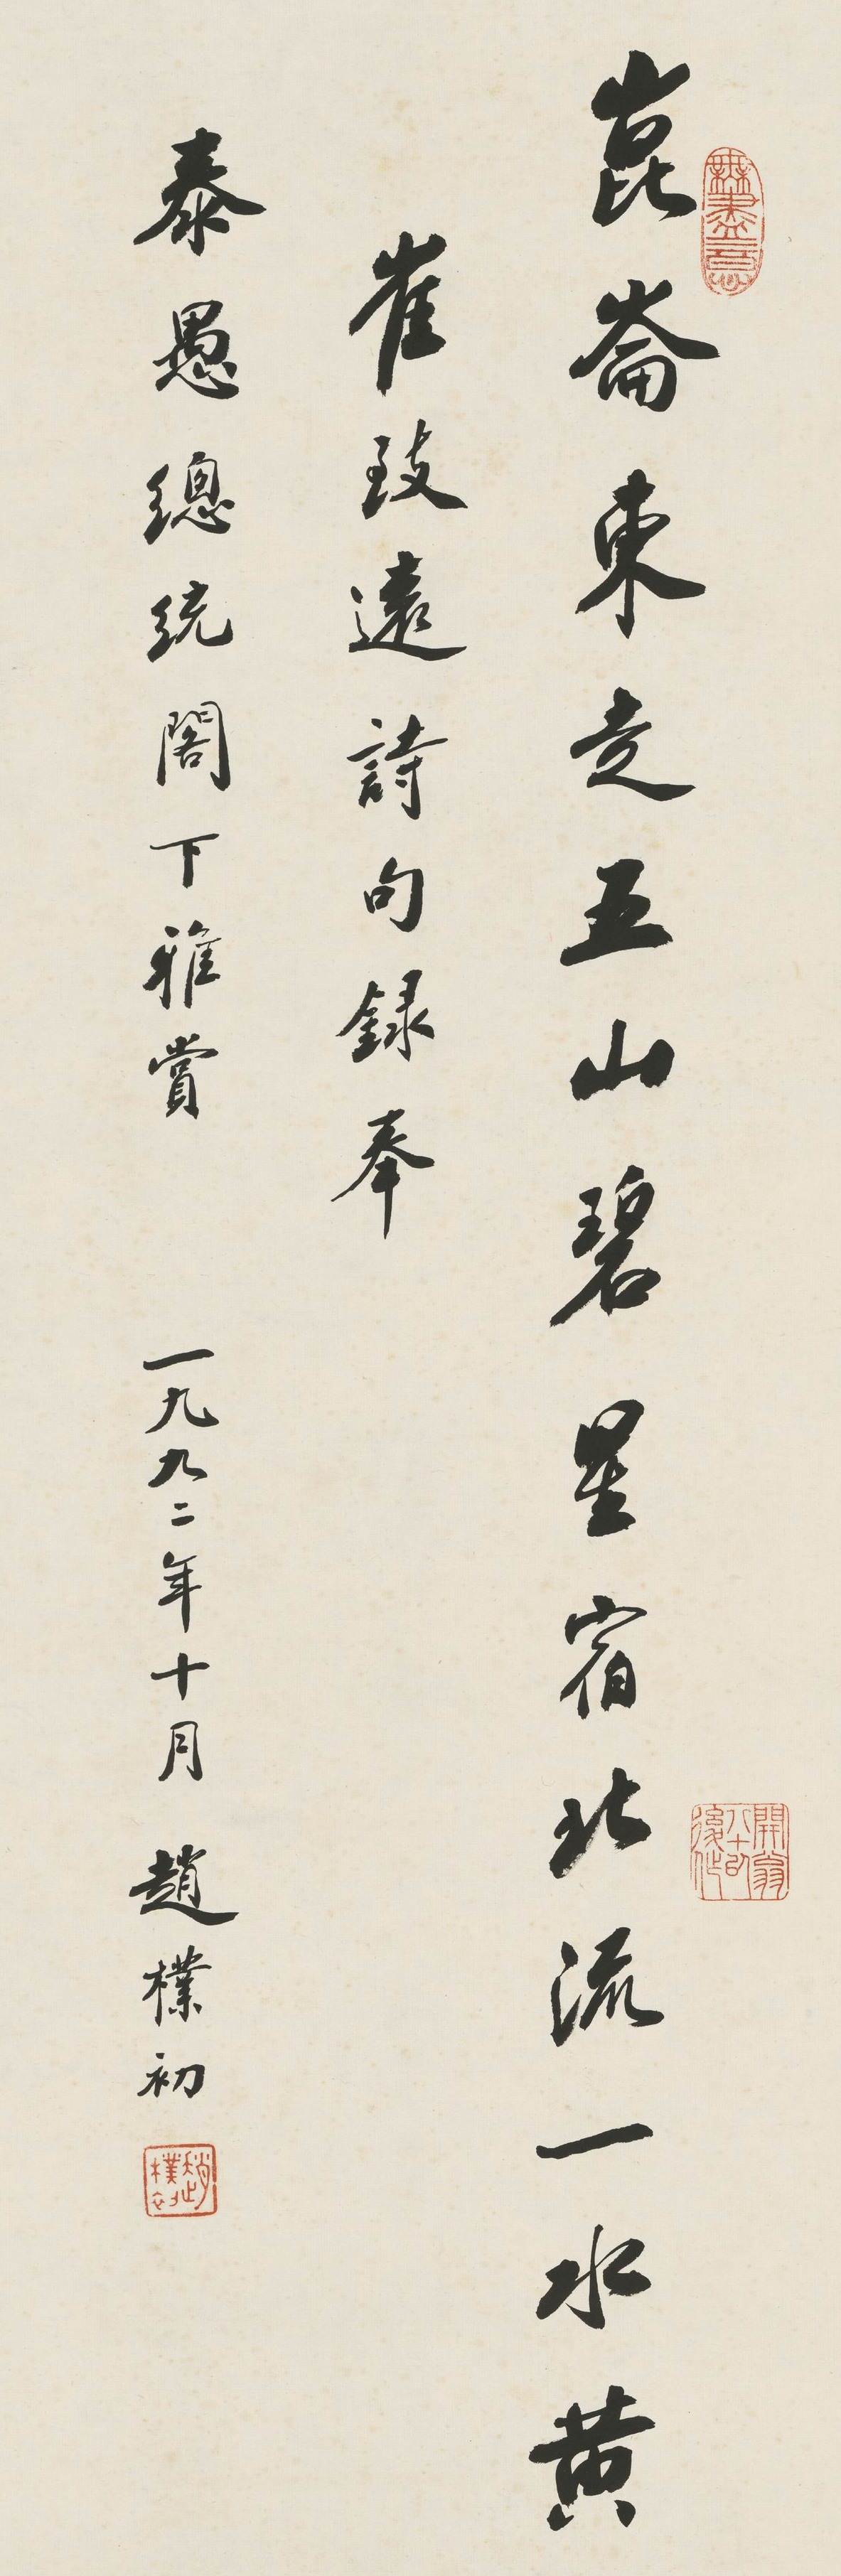 無盡意
崑崙東走五山碧星宿北流一水黄
開翁八十以後作
崔致遠詩句録奉
泰愚總統閣下雅賞
一九九二年十月 趙樸初
趙樸初